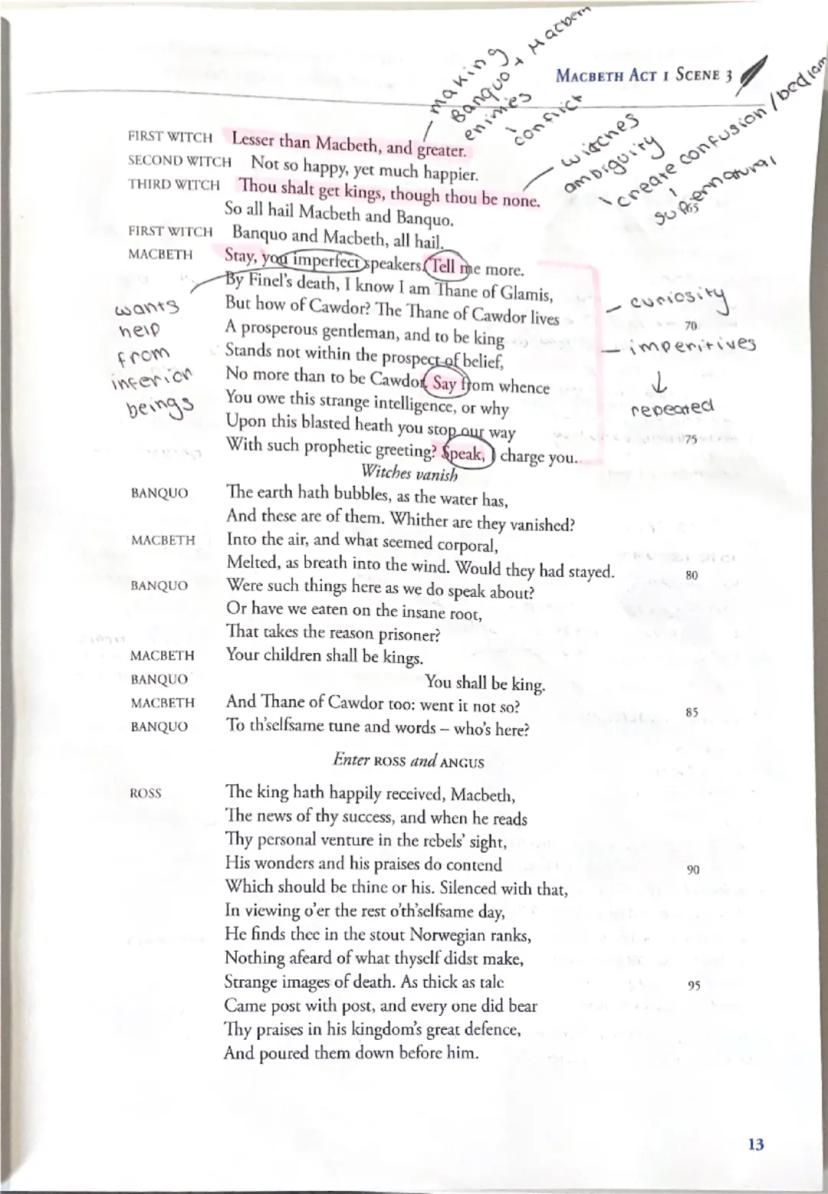 MACBETH ACT 1 SCENE 3
- making
Banquo + Macbeth
enimies
conflict
- witches
ambiguity
create confusion / bedlam
supernatural
65
FIRST WITCH Lesser than Macbeth, and greater.
SECOND WITCH Not so happy, yet much happier.
THIRD WITCH Thou shalt get kings, though thou be none.
So all hail Macbeth and Banquo.
FIRST WITCH Banquo and Macbeth, all hail.
MACBETH Stay, you imperfect speakers. Tell me more.
By Finel's death, I know I am Thane of Glamis,
But how of Cawdor? The Thane of Cawdor lives
A prosperous gentleman, and to be king 70
Stands not within the prospect of belief,
No more than to be Cawdor. Say from whence
You owe this strange intelligence, or why
Upon this blasted heath you stop our way
With such prophetic greeting? Speak, I charge you. 75
wants
help
from
inferior
beings
- curiosity
- imperitives
↓
repeated
Witches vanish
BANQUO The earth hath bubbles, as the water has,
And these are of them. Whither are they vanished?
MACBETH Into the air, and what seemed corporal,
Melted, as breath into the wind. Would they had stayed.
80
BANQUO Were such things here as we do speak about?
Or have we eaten on the insane root,
That takes the reason prisoner?
MACBETH Your children shall be kings.
BANQUO You shall be king.
MACBETH And Thane of Cawdor too: went it not so? 85
BANQUO To th'selfsame tune and words – who's here?
Enter ROSS and ANGUS
ROSS The king hath happily received, Macbeth,
The news of thy success, and when he reads
Thy personal venture in the rebels' sight,
His wonders and his praises do contend 90
Which should be thine or his. Silenced with that,
In viewing o'er the rest o'th'selfsame day,
He finds thee in the stout Norwegian ranks,
Nothing afeard of what thyself didst make,
Strange images of death. As thick as tale 95
Came post with post, and every one did bear
Thy praises in his kingdom's great defence,
And poured them down before him.
13